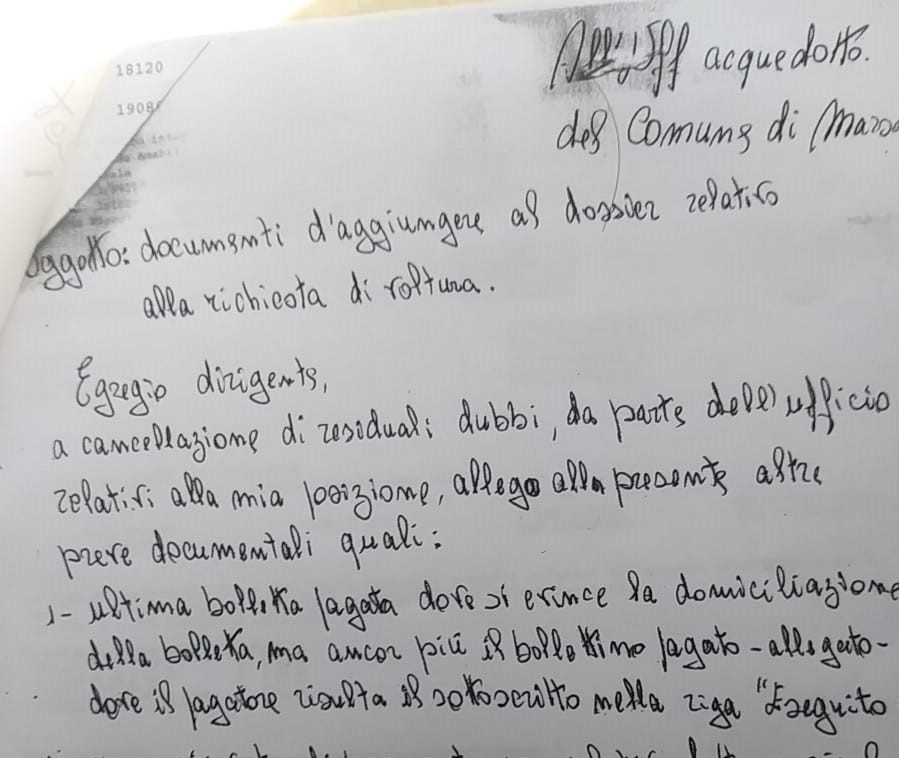 18120
1908
All'Uff acquedotto.
del Comune di
Oggetto: documenti d'aggiungere al dossier relativo
alla richiesta di voltura.
Egregio dirigente,
a cancellazione di residuali dubbi, da parte dell'ufficio
relativi alla mia posizione, allego alla presente altre
prove documentali quali:
1- ultima bolletta pagata dove si evince la domiciliazione
della bolletta, ma ancor più il bollettino pagato - allegato -
dove il pagatore risulta il sottoscritto nella riga "Eseguito